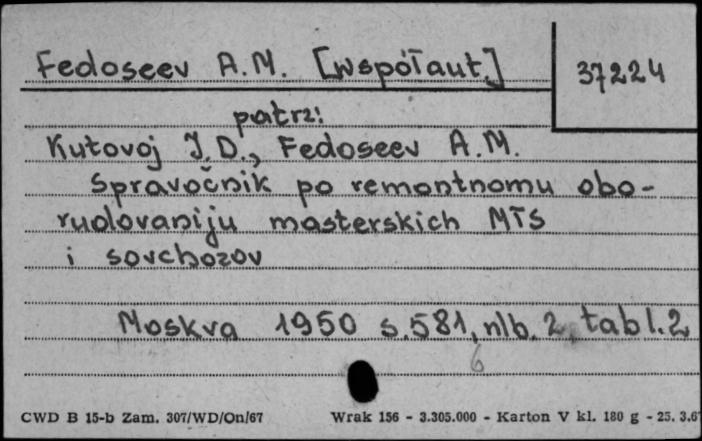 Fedoseev A.M. [współaut.]
37224
patrz:
Kutovoj I.D., Fedoseev A.M.
Spravočnik po remontnomu obo-
rudovaniju masterskich MTS
i sovchozov
Moskva 1950 s.581, nlb. 2, tabl.2
6
CWD B 15-b Zam. 307/WD/On/67 Wrak 156 - 3.305.000 - Karton V kl. 180 g - 25. 3.67